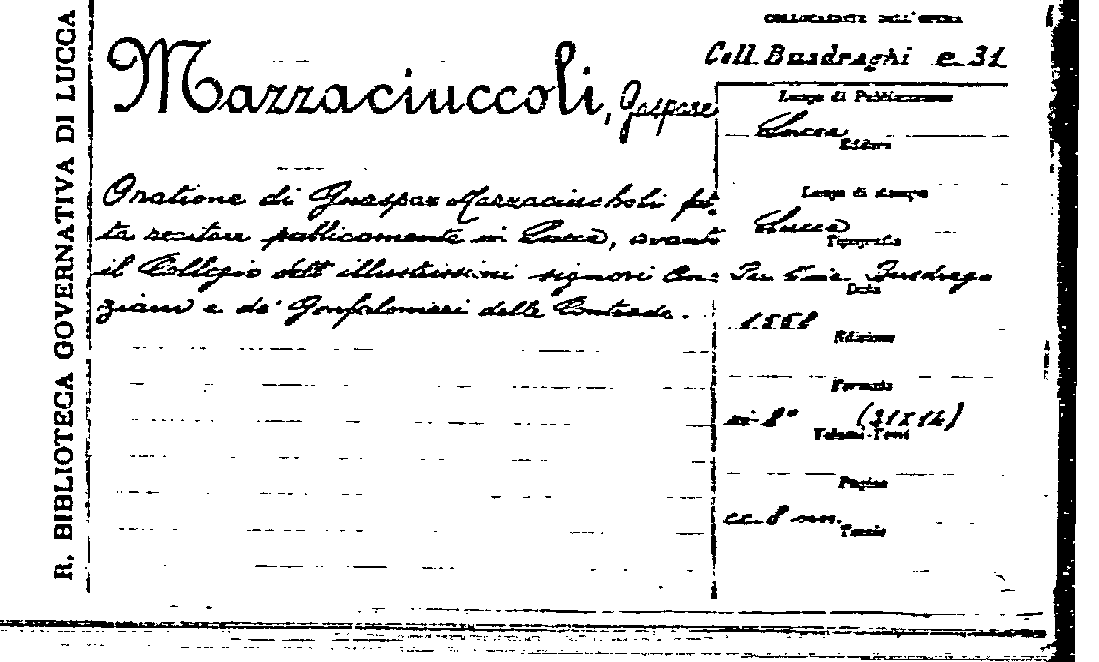 R. BIBLIOTECA GOVERNATIVA DI LUCCA
COLLOCAZIONE DELL'OPERA
Coll. Busdraghi e. 31
Mazzaciuccoli, Gaspare
Oratione di Guaspar Mazzaciucholi fat:
ta recitare publicamente in Lucca, avanti
il Collegio dell illustrissimi signori An:
ziani e de' Gonfalonieri delle Contrade.
Luogo di Pubblicazione
Lucca
Editore
Luogo di stampa
Lucca
Tipografia
Busdrago
Data
Edizione
Formato
in-8° (21x14)
Volumi-Tomi
Pagine
cc. 8 nn.
Tavole